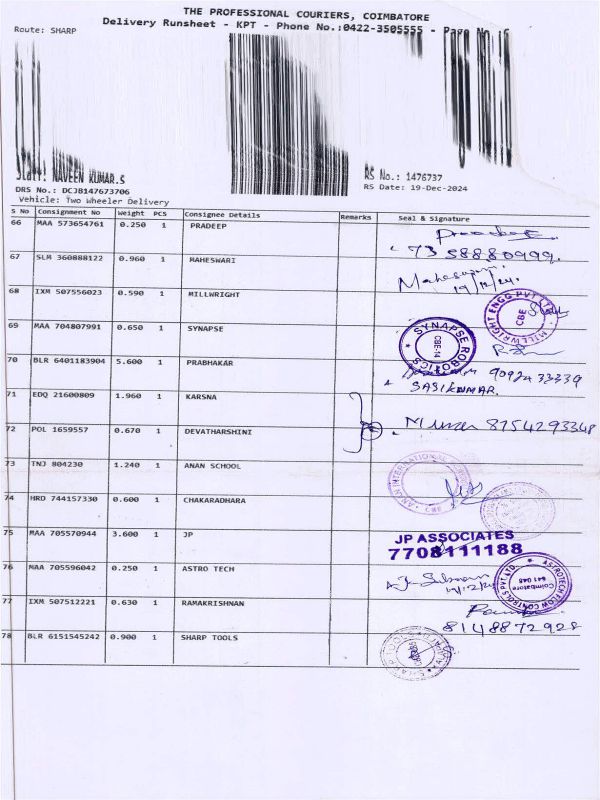 THE PROFESSIONAL COURIERS, COIMBATORE
Delivery Runsheet - KPT - Phone No.:0422-3505555 - Page No.:6
Route: SHARP
Staff: NAVEEN KUMAR.S
RS No.: 1476737
DRS No.: DCJ8147673706
RS Date: 19-Dec-2024
Vehicle: Two Wheeler Delivery
S No Consignment No Weight PCS Consignee Details Remarks Seal & Signature
66 MAA 573654761 0.250 1 PRADEEP
7358880999.
67 SLM 360888122 0.960 1 MAHESWARI Maheswari.
19/12/24.
68 IXM 507556023 0.590 1 MILLWRIGHT MILLWRIGHT ENGG PVT LTD CBE
69 MAA 704807991 0.650 1 SYNAPSE SYNAPSE ROBOTICS CBE-14
70 BLR 6401183904 5.600 1 PRABHAKAR 9092433339
SASIKUMAR.
71 EDQ 21600809 1.960 1 KARSNA
72 POL 1659557 0.670 1 DEVATHARSHINI 8754293348
73 TNJ 804230 1.240 1 ANAN SCHOOL ANAN INTERNATIONAL CBE
74 HRD 744157330 0.600 1 CHAKARADHARA
75 MAA 705570944 3.600 1 JP JP ASSOCIATES
7708111188
76 MAA 705596042 0.250 1 ASTRO TECH ASTROTECH FLOW CONTROLS PVT. LTD. Coimbatore 641 048
77 IXM 507512221 0.630 1 RAMAKRISHNAN
8148872928
78 BLR 6151545242 0.900 1 SHARP TOOLS SHARP TOOLS